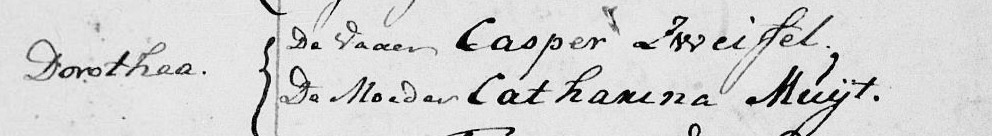 Dorothea.
De Vader Casper Zweiffel.
De Moeder Catharina Muijt.